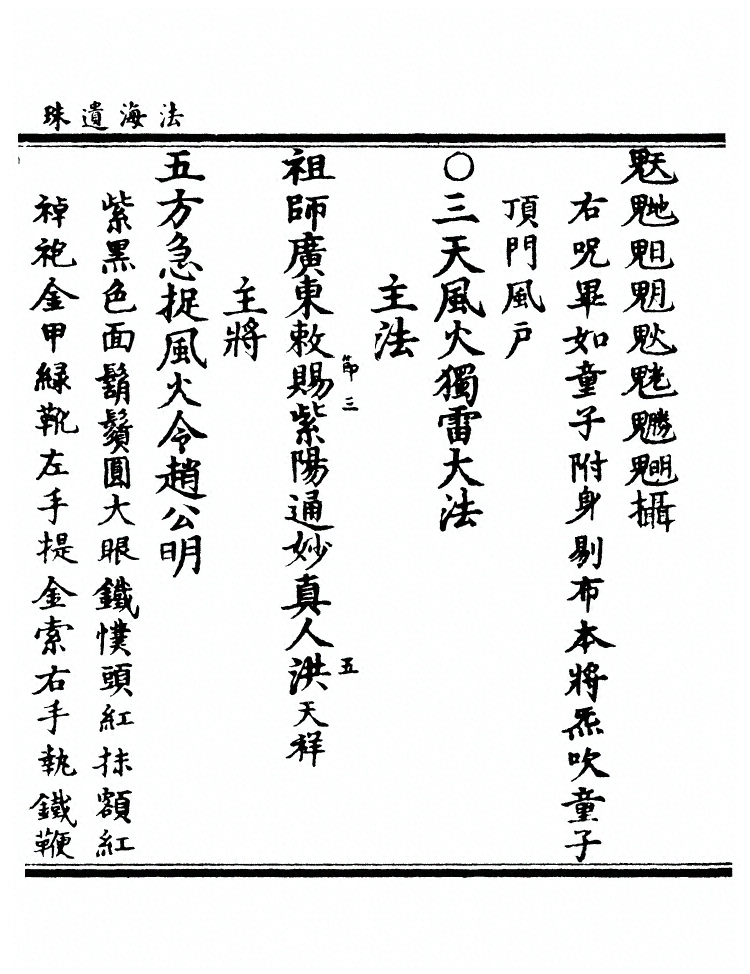 法海遺珠
⿺鬼天⿺鬼地⿺鬼日⿺鬼月⿺鬼火⿺鬼勝⿺鬼明攝
右呪畢如童子附身剔布本將炁吹童子
頂門風戶
○三天風火獨雷大法
主法
節三 五
祖師廣東敕賜紫陽通妙真人洪天祥
主將
五方急捉風火令趙公明
紫黑色面鬍鬚圓大眼鐵幞頭紅抹額紅
袍金甲緑靴左手提金索右手執鐵鞭